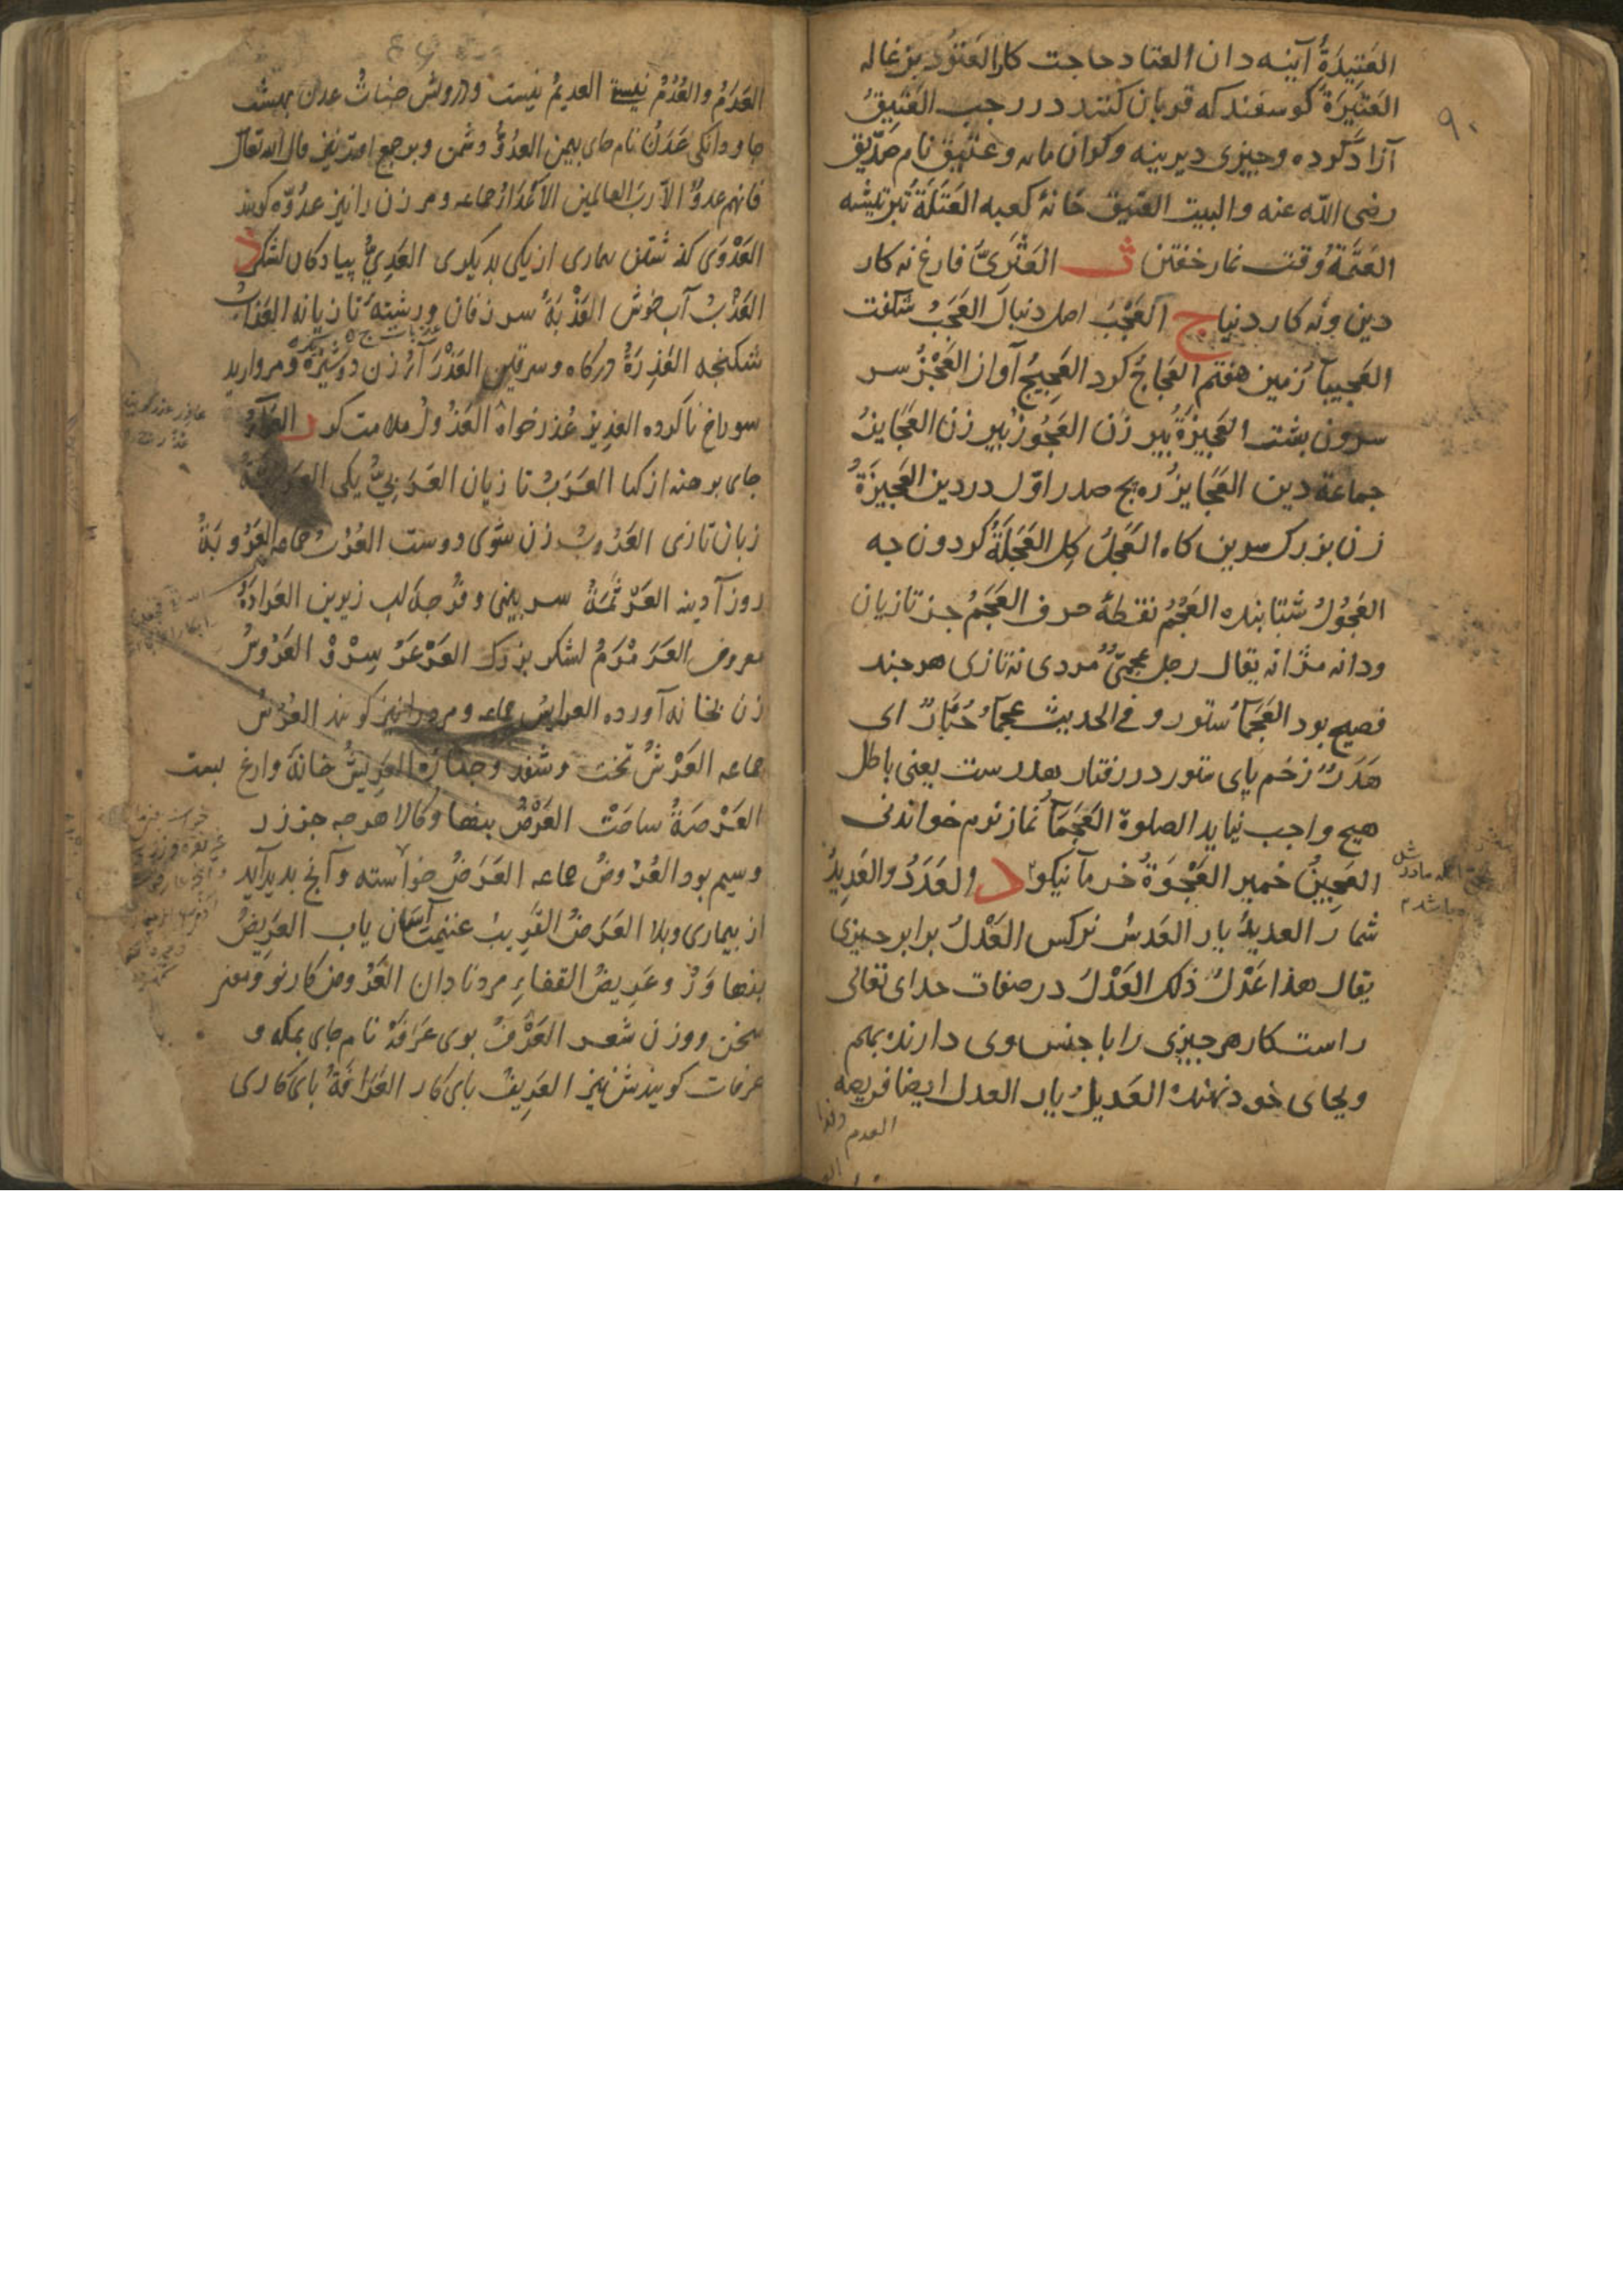 ٩٠
العَتِيدَةُ آینه دان العتاد حاجت کار العَتُود بزغاله
العَتِیرَةُ کوسفند که قربان کنند در رجب العَتِیقُ
آزاد کرده و چیزی دیرینه و کران مایه و عتیق نام صدّیق
رضی الله عنه والبیت العتیق خانهٔ کعبه العَتَلَةُ تبر تیشه
العَتَمَةُ وقت نماز خفتن ث العَثَریُّ فارغ نه کار
دین و نه کار دنیا ج العَجْبُ اصل دنبال العَجَبُ شکفت
العَجیبآ زمین هفتم العَجَاجُ کرد العَجِیجُ آواز العَجُزُ سر
سرون بشت العَجِیزَةُ بیر زن العَجُوزُ بیر زن العَجَایزُ
جماعة دین العَجَایزُ ره بح صدر اوّل در دین العَجِیزَةُ
زن بزرک سرین کاه العَجَلُ کل العَجَلَةُ کردون جه
العَجُولُ شتابنده العَجْمُ نقطهٔ حرف العَجَمُ جز تازیان
ودانه مژانه یقال رجل عجمیٌّ مردی نه تازی هرجند
فصیح بود العَجمآءُ ستور و فی الحدیث عجمآءُ جُبَارٌ ای
هَدَرٌ زخم بای ستور در رفتار هدرست یعنی باطل
هیچ واجب نیاید الصلوة العَجمَآءُ نماز نرم خواندنی
العَجِینُ خمیر العَجْوَةُ خرمآ نیکو د العَدَدُ والعَدِیدُ
شمار العدیدُ یار العَدَسُ نرکس العَدْلُ برابر جیزی
یقال هذا عَدْلُ ذلک العَدْلُ در صفات خدای تعالی
راست کار هر جیزی را با جنس وی دارنده بهم
وبجای خود نهنده العَدِیلُ یار العدل ایضا فریضه
العدم
العَدَمُ والعُدْمُ نیستی العدیمُ نیست و درویش جناتُ عدن بهشت
جاودانکی عَدَنُ نام جای بیمن العدُوُّ دشمن و بر جمع افتد نیز قال الله تعالی
فانهم عدوٌّ الا ربَّ العالمین الاَعْدَاءُ جماعه و مر زن را نیز عدُوّه کویند
العَدْوَی کذشتن بیماری از یکی بدیکری العَدِیُّ بیادکان لشکر ذ
العَذْبُ آب خوش العَذَبَةُ سر زفان و رشتهٔ تازیانه العَذَابُ
شکنجه العَذِرَةُ درکاه و سرقین العَذْرَآءُ زن دوشیزه و مروارید
سوراخ ناکرده العَذِیرُ عُذر خواه العَذُولُ ملامت کر ر العَرَآءُ
جای برهنه از کیا العَرَبُ تازیان العَرَبِیُّ یکی العَرَبِیَّةُ
زبان تازی العَرُوبُ زن شوی دوست العُرُبُ جماعه العَرُوبَةُ
روز آدینه العَرْتَمَةُ سر بینی و فرجهٔ لب زیرین العَرَادَةُ
معروف العَرَمْرَمُ لشکر بزرک العَرْعَرُ سِرْوْ العَرُوسُ
زن بخانه آورده العرایسُ جماعه و مرد را نیز کویند العُرُسُ
جماعه العَرْشُ تخت و سقف و جنازه العَرِیشُ خانهٔ وارغ بست
العَرْصَةُ ساحَتْ العَرْضُ بنها و کالا هرجه جز زر
وسیم بود العُرُوضُ جماعه العَرَضُ خواسته و آنج بدید آید
از بیماری و بلا العَرَضُ القَریبُ غنیمت آسان یاب العَرِیضُ
بنها وَرْ و عَرِیضُ القفاء مرد نادان العَرُوضُ کار نو و معنی
سخن و وزن شعر العَرْفُ بوی عَرَفَةُ نام جای بمکه و
عرفات کویندش نیز العَرِیفُ بای کار العَرَافَةُ بای کاری